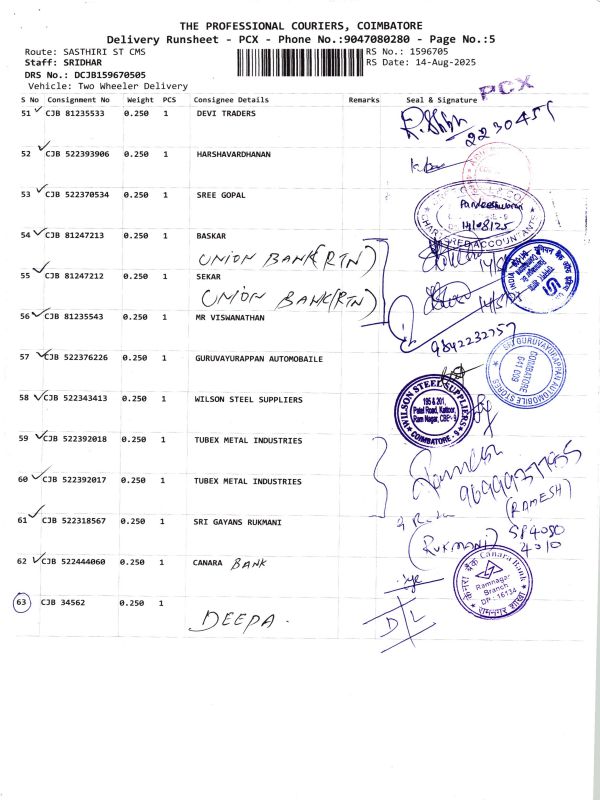 THE PROFESSIONAL COURIERS, COIMBATORE
Delivery Runsheet - PCX - Phone No.:9047080280 - Page No.:5
Route: SASTHIRI ST CMS
RS No.: 1596705
Staff: SRIDHAR
RS Date: 14-Aug-2025
DRS No.: DCJB159670505
Vehicle: Two Wheeler Delivery
PCX
S No Consignment No Weight PCS Consignee Details Remarks Seal & Signature
51 CJB 81235533 0.250 1 DEVI TRADERS
2230455
52 CJB 522393906 0.250 1 HARSHAVARDHANAN
53 CJB 522370534 0.250 1 SREE GOPAL
Pandeeshwaran
14/08/25
CHARTERED ACCOUNTANTS
54 CJB 81247213 0.250 1 BASKAR
UNION BANK (RTN)
55 CJB 81247212 0.250 1 SEKAR
UNION BANK (RTN)
56 CJB 81235543 0.250 1 MR VISWANATHAN
9842232757
57 CJB 522376226 0.250 1 GURUVAYURAPPAN AUTOMOBAILE
SRI GURUVAYURAPPAN AUTOMOBILE STORES
COIMBATORE
641 009
58 CJB 522343413 0.250 1 WILSON STEEL SUPPLIERS
WILSON STEEL SUPPLIERS
195 & 201,
Patel Road, Kattoor,
Ram Nagar, CBE-9
COIMBATORE - 9
59 CJB 522392018 0.250 1 TUBEX METAL INDUSTRIES
60 CJB 522392017 0.250 1 TUBEX METAL INDUSTRIES
(RAMESH)
61 CJB 522318567 0.250 1 SRI GAYANS RUKMANI
(RUKMANI)
4010
62 CJB 522444060 0.250 1 CANARA BANK
केनरा बैंक Canara Bank
Ramnagar
Branch
DP: 16134
रामनगर शाखा
63 CJB 34562 0.250 1
DEEPA.
D/L